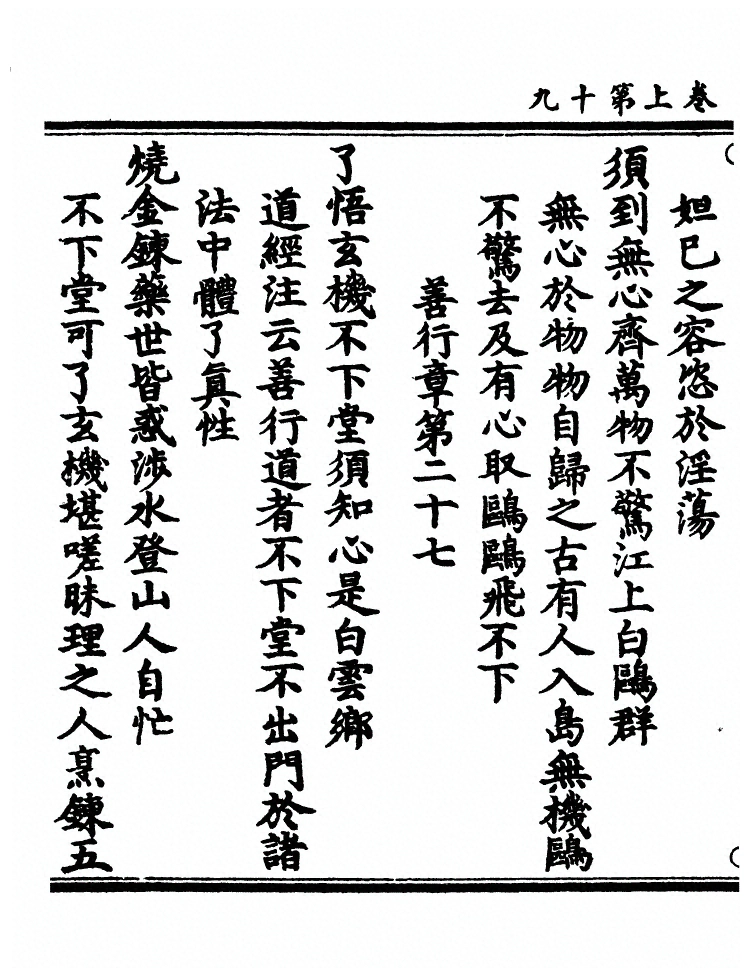 卷上第十九
妲已之容恣於淫蕩
須到無心齊萬物不驚江上白鷗群
無心於物物自歸之古有人入島無機鷗
不驚去及有心取鷗鷗飛不下
善行章第二十七
了悟玄機不下堂須知心是白雲鄉
道經注云善行道者不下堂不出門於諸
法中體了眞性
燒金鍊藥世皆惑涉水登山人自忙
不下堂可了玄機堪嗟昧理之人烹鍊五